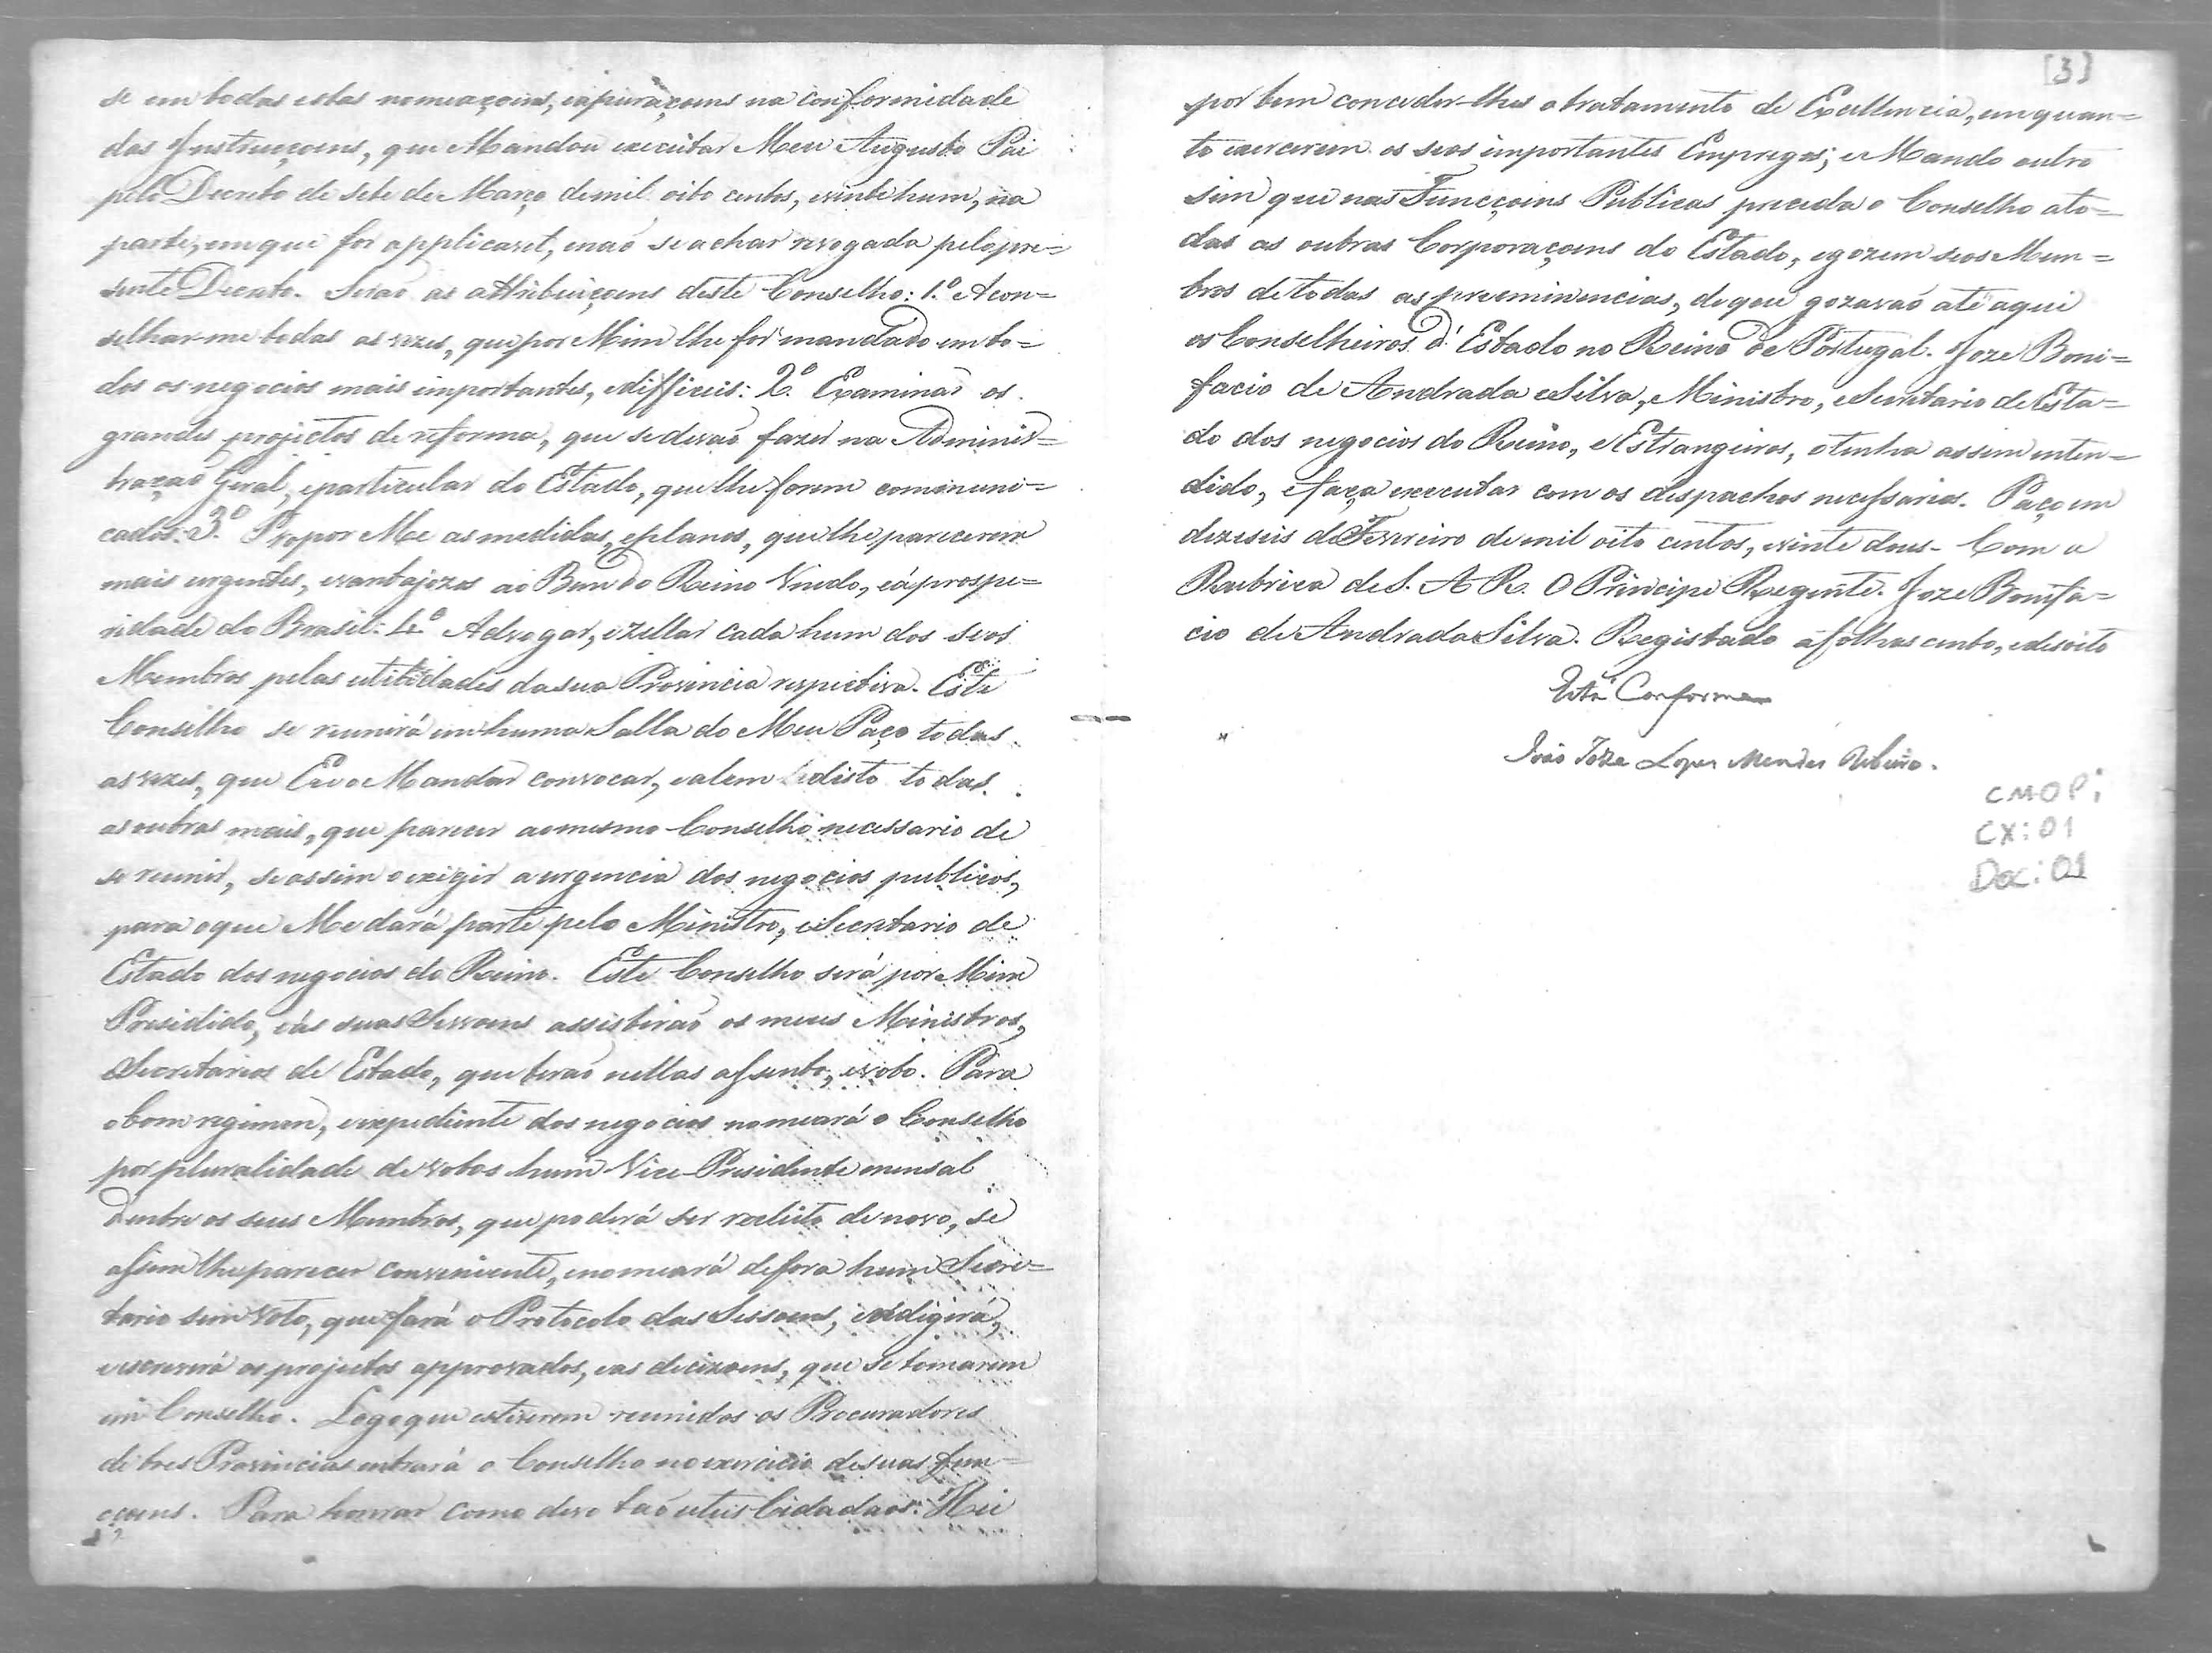 se em todas estas nomeaçoens, e apuraçoens na conformidade
das Instrucçoens, que Mandou executar Meu Augusto Pai
pelo Decreto de sete de Março de mil oito centos, e vinte hum, na
parte, em que for applicavel, e naõ se achar revogada pelo pre=
sente Decreto. Seraõ as attribuiçoens deste Conselho: 1.º Acon=
selhar-me todas as vezes, que por Mim lhe for mandado em to=
dos os negocios mais importantes, e difficeis: 2.º Examinar os
grandes projectos de reforma, que se devaõ fazer na Adminis=
traçaõ Geral, e particular do Estado, que lhe forem communi=
cados: 3.º Propor Me as medidas, e planos, que lhe parecerem
mais urgentes, e vantajozos ao Bem do Reino Unido, e á prospe=
ridade do Brasil: 4.º Advogar, e zellar cada hum dos seos
Membros pelas utilidades da sua Provincia respectiva. Este
Conselho se reunirá em huma Salla do Meu Paço todas
as vezes, que Eu o Mandar convocar, e alem disto todas
as outras mais, que parecer ao mesmo Conselho necessario de
se reunir, se assim o exigir a urgencia dos negocios publicos,
para o que Me dará parte pelo Ministro, e Secretario de
Estado dos negocios do Reino. Este Conselho será por Mim
Presidido, e ás suas Sessoens assistiraõ os meus Ministros,
e Secretarios de Estado, que teraõ nellas assento, e voto. Para
o bom regimen, e expediente dos negocios nomeará o Conselho
por pluralidade de votos hum Vice-Presidente mensal
dentre os seus Membros, que poderá ser reeleito de novo, se
assim lhe parecer conveniente, e nomeará de fora hum Secre=
tario sem voto, que fará o Protocolo das Sessoens, e redigirá,
e escreverá os projectos approvados, e as decizoens, que se tomarem
em Conselho. Logo que estiverem reunidos os Procuradores
de tres Provincias entrará o Conselho no exercicio de suas fun=
cçoens. Para honrar como devo taõ uteis Cidadaõs: Hei
[3]
por bem conceder-lhes o tratamento de Excellencia, em quan=
to exercerem os seos importantes Empregos; e Mando outro
sim que nas Funcçoens Publicas preceda o Conselho a to=
das as outras Corporaçoens do Estado, e gozem seos Mem=
bros de todas as preeminencias, de que gozavaõ até aqui
os Conselheiros d'Estado no Reino de Portugal. Joze Boni=
facio de Andrada e Silva, Ministro, e Secretario de Esta=
do dos negocios do Reino, e Estrangeiros, o tenha assim enten=
dido, e faça executar com os despachos necessarios. Paço em
dezeseis de Fevereiro de mil oito centos, e vinte dous - Com a
Rubrica de S. A. R. O Principe Regente. Joze Bonifa=
cio de Andrada e Silva. Registado a folhas cento, e desoito
Está Conforme
João Joze Lopes Mendes Ribeiro.
CMOP;
CX: 01
Doc: 01